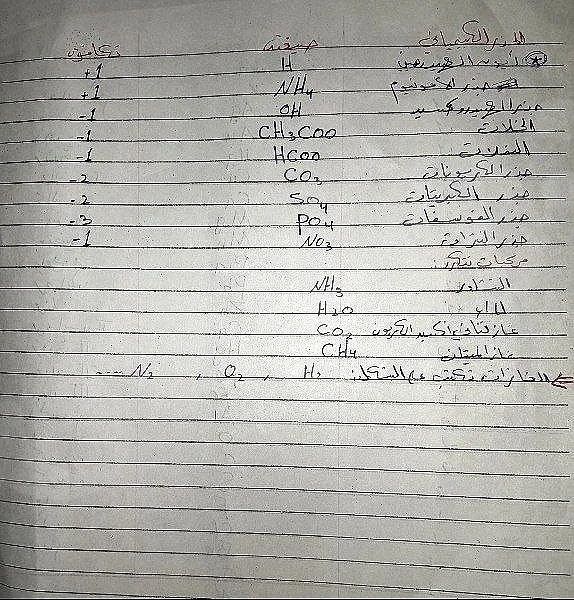 الجذر الكيميائي صيغته تكافؤه
أيون الهيدروجين H +1
جذر الأمونيوم NH4 +1
جذر الهيدروكسيد OH -1
الخلات CH3COO -1
النملات HCOO -1
جذر الكربونات CO3 -2
جذر الكبريتات SO4 -2
جذر الفوسفات PO4 -3
جذر النترات NO3 -1
مركبات تتكرر:
النشادر NH3
الماء H2O
غاز ثنائي أكسيد الكربون CO2
غاز الميتان CH4
الغازات تكتب على الشكل: H2 , O2 , N2 ----